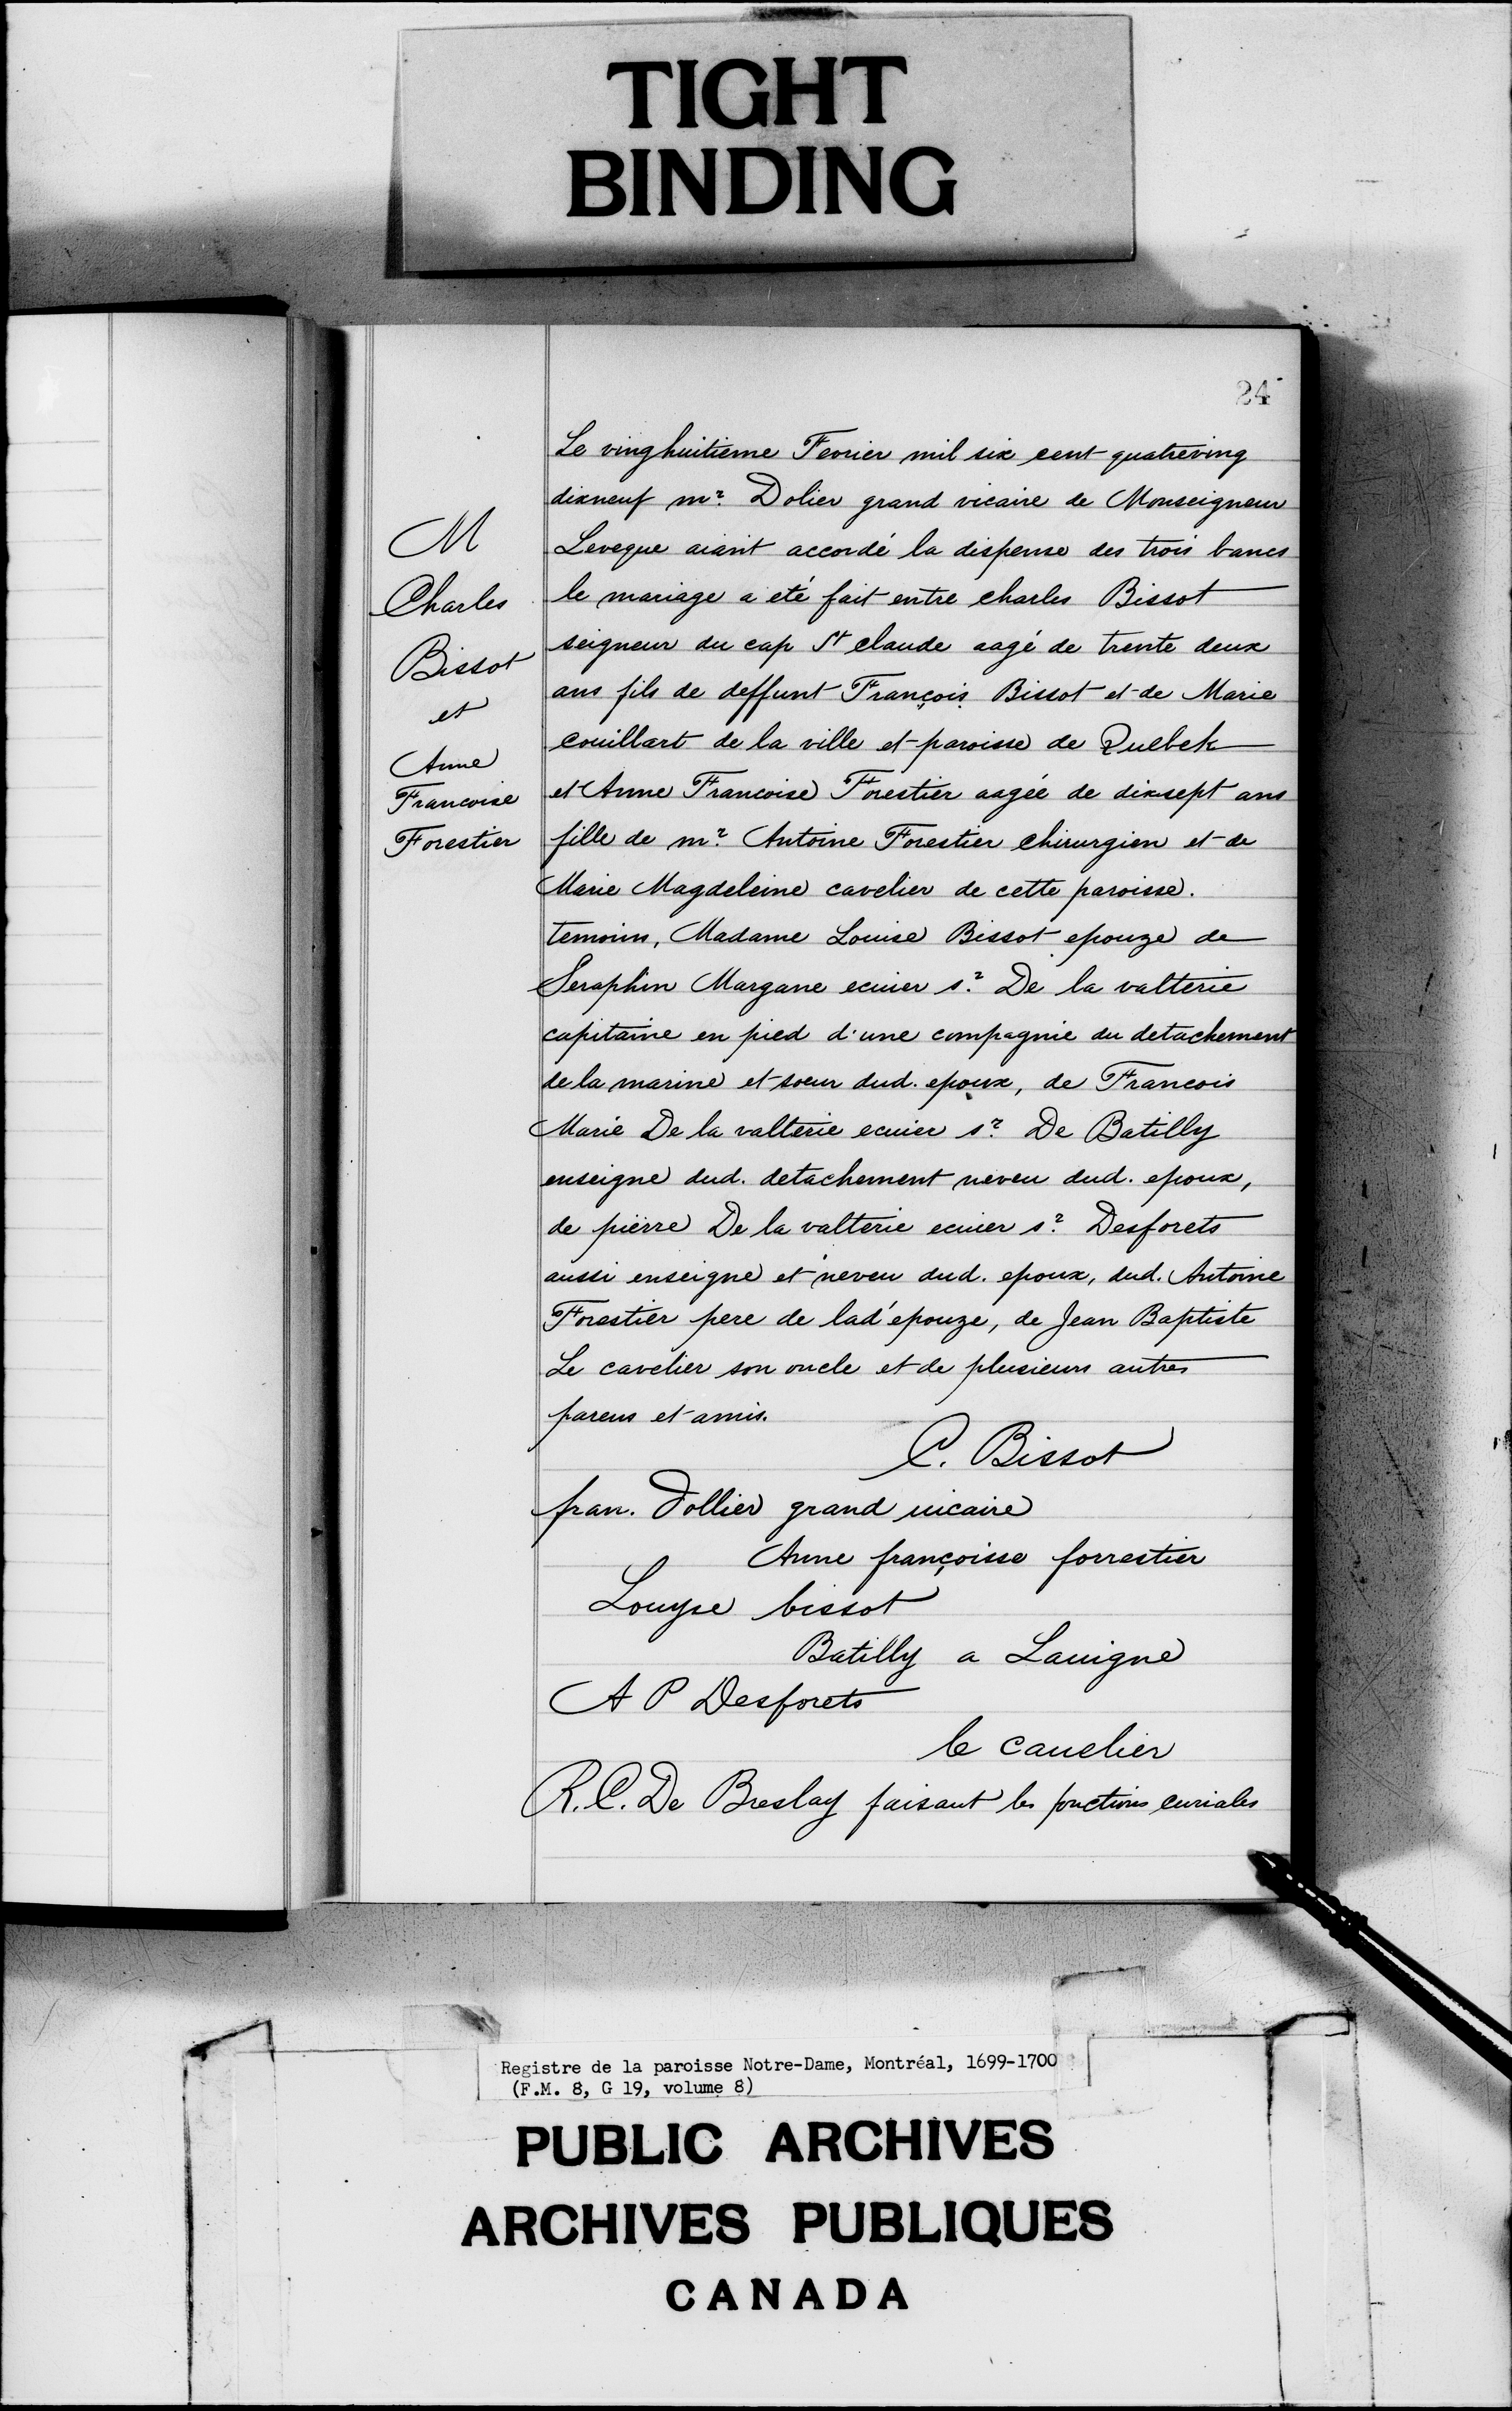 TIGHT
BINDING
24
M
Charles
Bissot
et
Anne
Francoise
Forestier
Le vinghuitieme Fevrier mil six cent quatreving
dixneuf mr. Dolier grand vicaire de Monseigneur
Leveque aiant accordé la dispense des trois bancs
le mariage a eté fait entre charles Bissot
seigneur du cap St claude aagé de trente deux
ans fils de deffunt François Bissot et de Marie
couillart de la ville et paroisse de Quebek
et Anne Francoise Forestier aagée de dixsept ans
fille de mr. Antoine Forestier chirurgien et de
Marie Magdeleine cavelier de cette paroisse.
temoins, Madame Louise Bissot epouze de
Seraphin Margane ecuier sr. De la valterie
capitaine en pied d'une compagnie du detachement
de la marine et soeur dud. epoux, de Francois
Marie De la valterie ecuier sr. De Batilly
enseigne dud. detachement neveu dud. epoux,
de pierre De la valterie ecuier sr. Desforets
aussi enseigne et neveu dud. epoux, dud. Antoine
Forestier pere de lad' epouze, de Jean Baptiste
Le cavelier son oncle et de plusieurs autres
parens et amis.
C. Bissot
fran. Dollier grand uicaire
Anne françoisse forrestier
Louyse bissot
Batilly a Lauigne
A P Desforets
le cauelier
R. C. De Breslay faisant les fonctions curiales
Registre de la paroisse Notre-Dame, Montréal, 1699-1700
(F.M. 8, G 19, volume 8)
PUBLIC ARCHIVES
ARCHIVES PUBLIQUES
CANADA